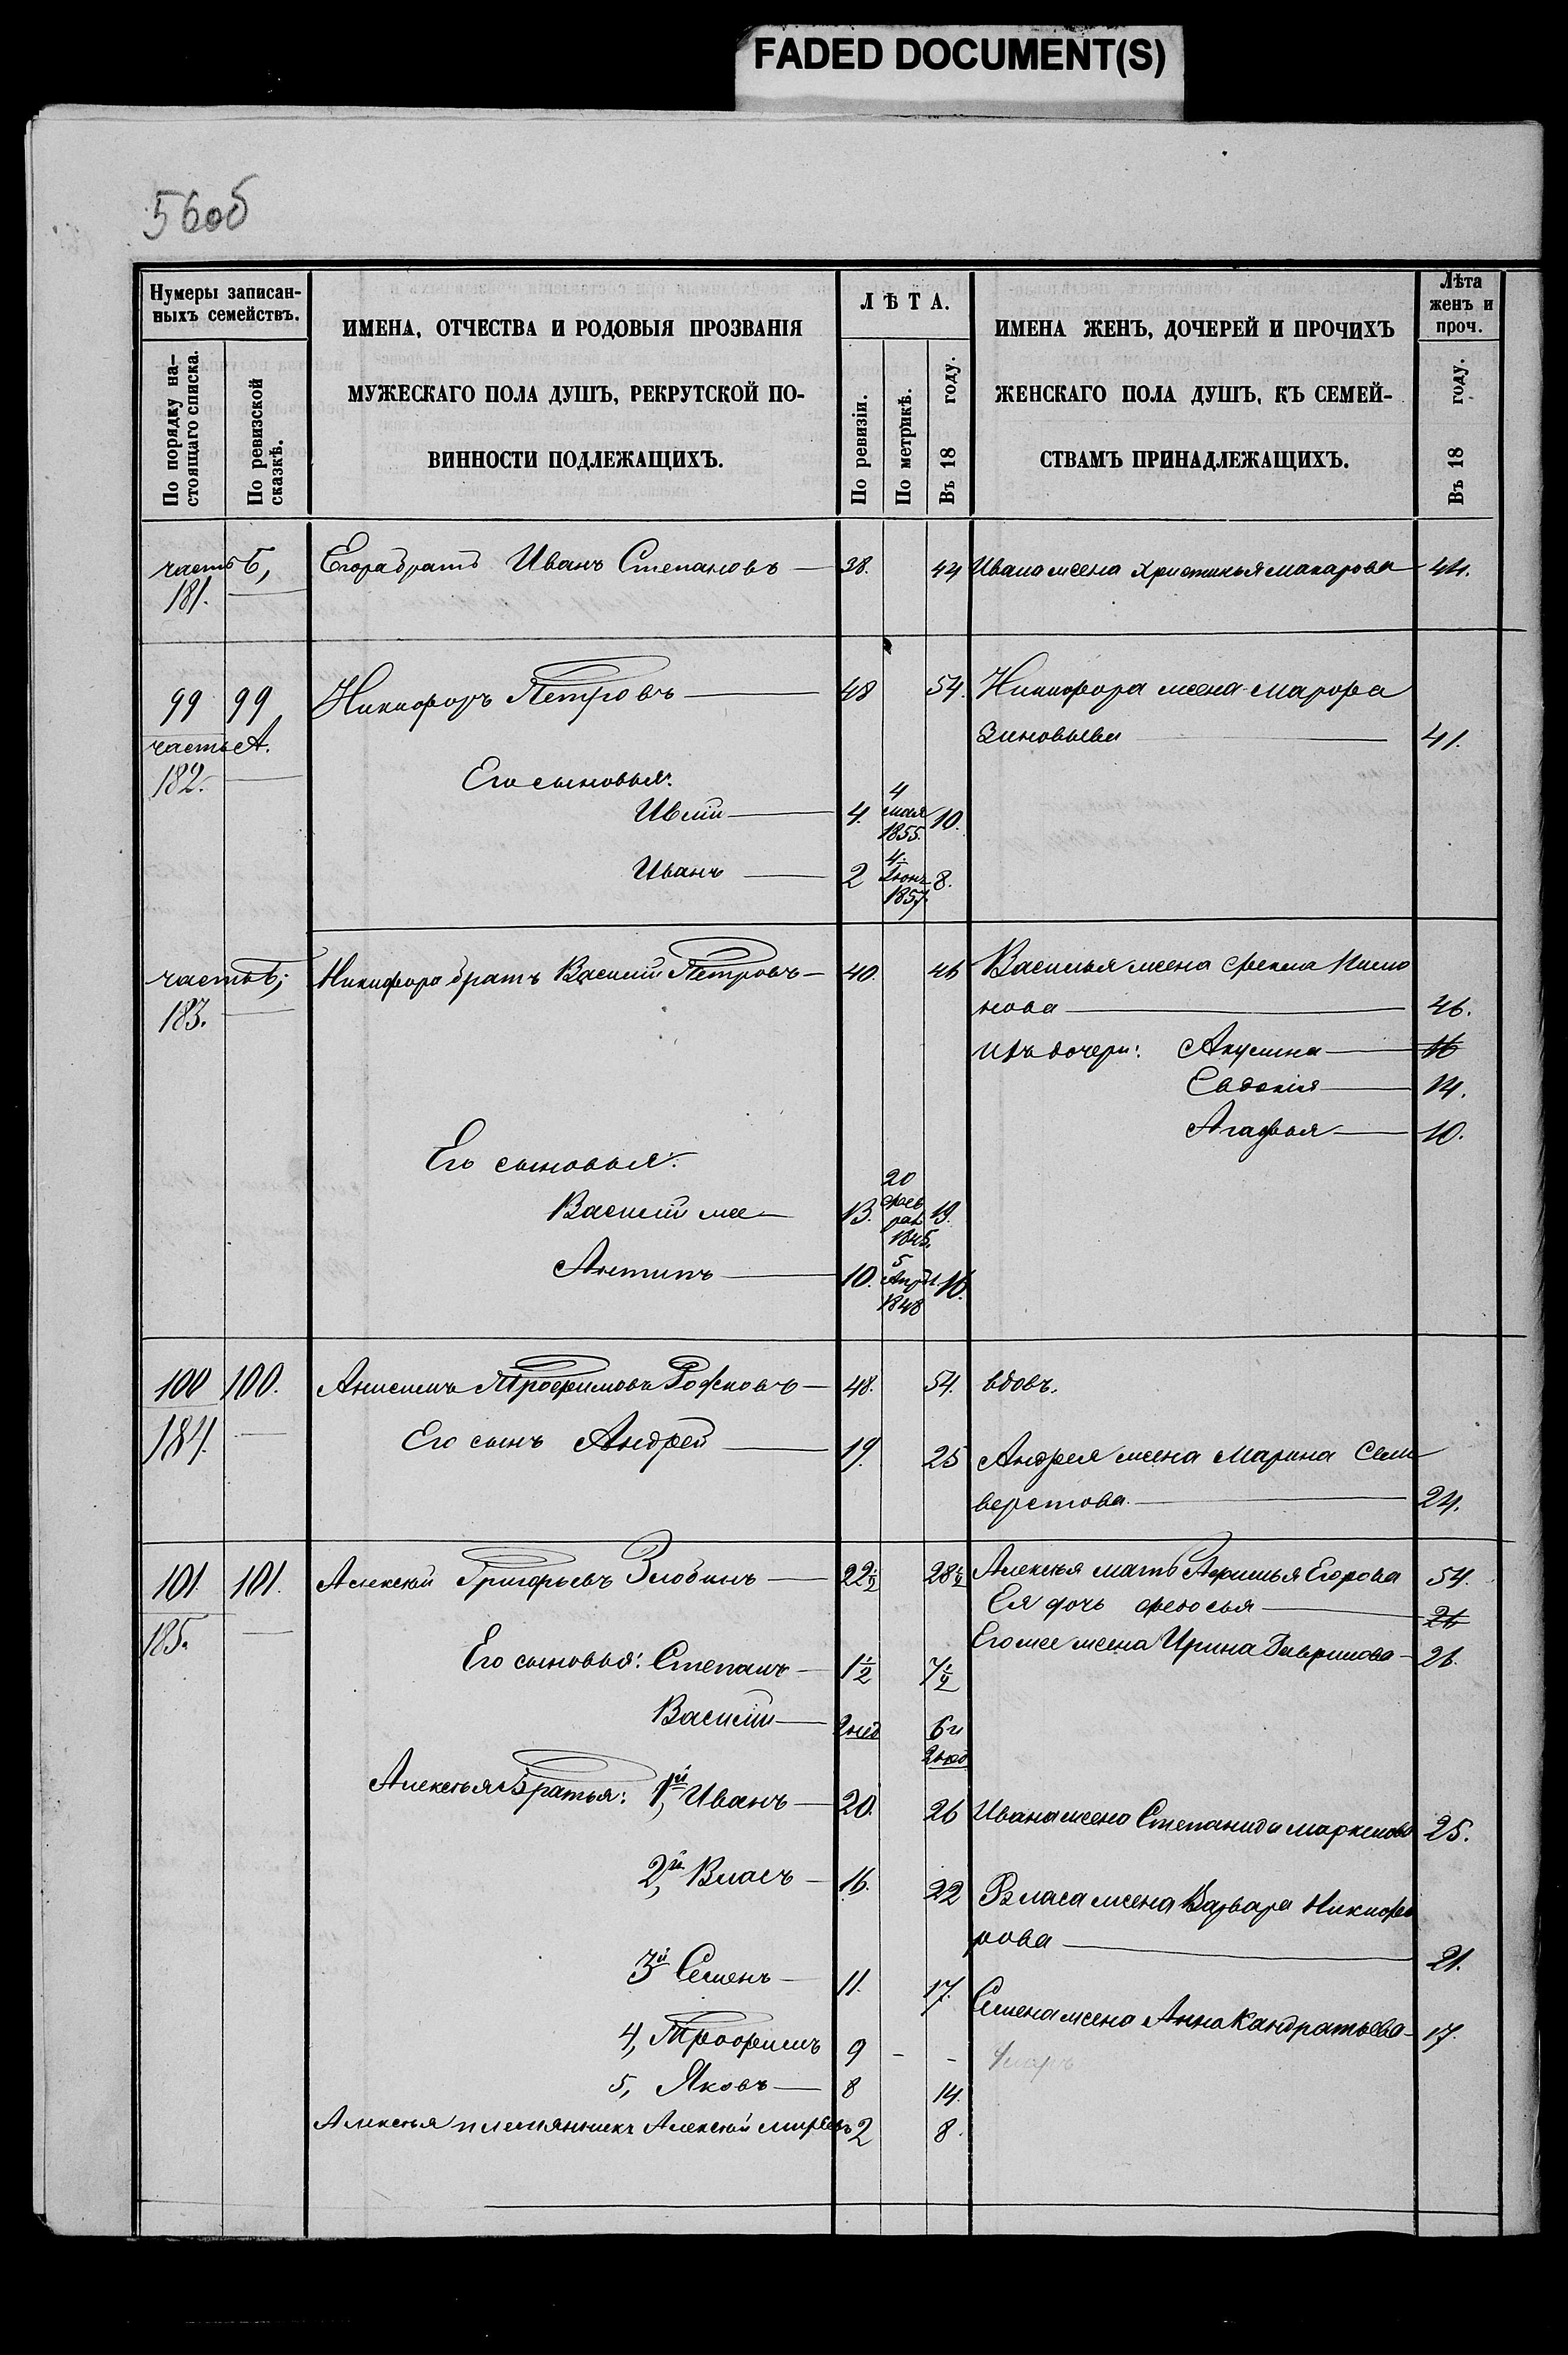 FADED DOCUMENT(S)
56об
Нумеры записан-
ныхъ семействъ.
По порядку на-
стоящаго списка.
По ревизской
сказкѣ.
ИМЕНА, ОТЧЕСТВА И РОДОВЫЯ ПРОЗВАНІЯ
МУЖЕСКАГО ПОЛА ДУШЪ, РЕКРУТСКОЙ ПО-
ВИННОСТИ ПОДЛЕЖАЩИХЪ.
ЛѢТА.
По ревизіи.
По метрикѣ.
Въ 18 году.
ИМЕНА ЖЕНЪ, ДОЧЕРЕЙ И ПРОЧИХЪ
ЖЕНСКАГО ПОЛА ДУШЪ, КЪ СЕМЕЙ-
СТВАМЪ ПРИНАДЛЕЖАЩИХЪ.
Лѣта
женъ и
проч.
Въ 18 году.
часть Б,
181.
Егора братъ Иванъ Степановъ 38. 44 Ивана жена Христинья Макарова 44.
99 99 Никифоръ Петровъ 48 54. Никифора жена Марфа
часть А.
182.
Зиновьева 41.
Его сыновья:
4. 4 мая 1855. 10.
Иванъ 2 4. Іюн. 1857. 8.
часть Б;
183.
Никифора братъ Василій Петровъ 40. 46 Василья жена
нова 46.
Ихъ дочери: Акулина 16
Евдокія 14.
Агафья 10.
Его сыновья:
Василій же 13. 20 фев рал 1845. 19.
Антипъ 10. 5 Апрл. 1848 16.
100 100. Анисимъ Трофимовъ 48. 54. вдовъ.
184.
Его сынъ Андрей 19. 25 Андрея жена Марина Сели
верстова 24.
101. 101. Алексѣй Григорьевъ Злобинъ 22½ 28½ Алексѣя мать Афимья Егорова 54.
185.
Ея дочь Федосья 26
Его же жена Ирина Гаврилова 26.
Его сыновья: Степанъ 1½ 7½
Василій 2 нед 6 и
2 нед
Алексѣя Братья: 1й, Иванъ 20. 26 Ивана жена Степанида Маркелова 25.
2й, Власъ 16. 22 Власа жена Варвара Никифо
рова 21.
3й Семенъ 11. 17. Семена жена Анна Кандратьева 17.
4, Трофимъ 9 - -
5, Яковъ 8 14.
Алексѣя племянникъ Алексѣй 2 8.